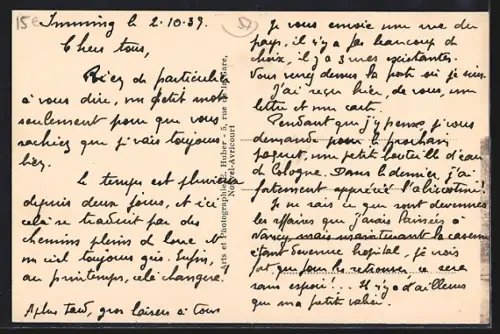 15€
57
Imming le 2.10.39.
Chers tous,
Rien de particulier
à vous dire, un petit mot
seulement pour que vous
sachiez que je vais toujours
bien.
Le temps est pluvieux
depuis deux jours, et ici
celà se traduit par des
chemins pleins de boue et
un ciel toujours gris. Enfin,
au printemps, celà changera!
A plus tard, gros baisers à tous
Arts et Photographie L. Huber - 5, rue de la Gare,
Nouvel-Avricourt
Je vous envoie une vue du
pays, il n'y a pas beaucoup de
choix, il y a 3 vues existantes.
Vous verrez dessus la poste où je suis.
J'ai reçu hier, de vous, une
lettre et une carte.
Pendant que j'y pense, j'vous
demande pour le prochain
paquet, une petite bouteille d'eau
de Cologne. Dans le dernier, j'ai
fortement apprécié l'abricotine!
Je ne sais ce que sont devenues
les affaires que j'avais laissées à
Nancy mais maintenant la caserne
étant devenue hopital, je crois
fort que pour les retrouver ce sera
sans espoir!... Il n'y a d'ailleurs
que ma petite valise.